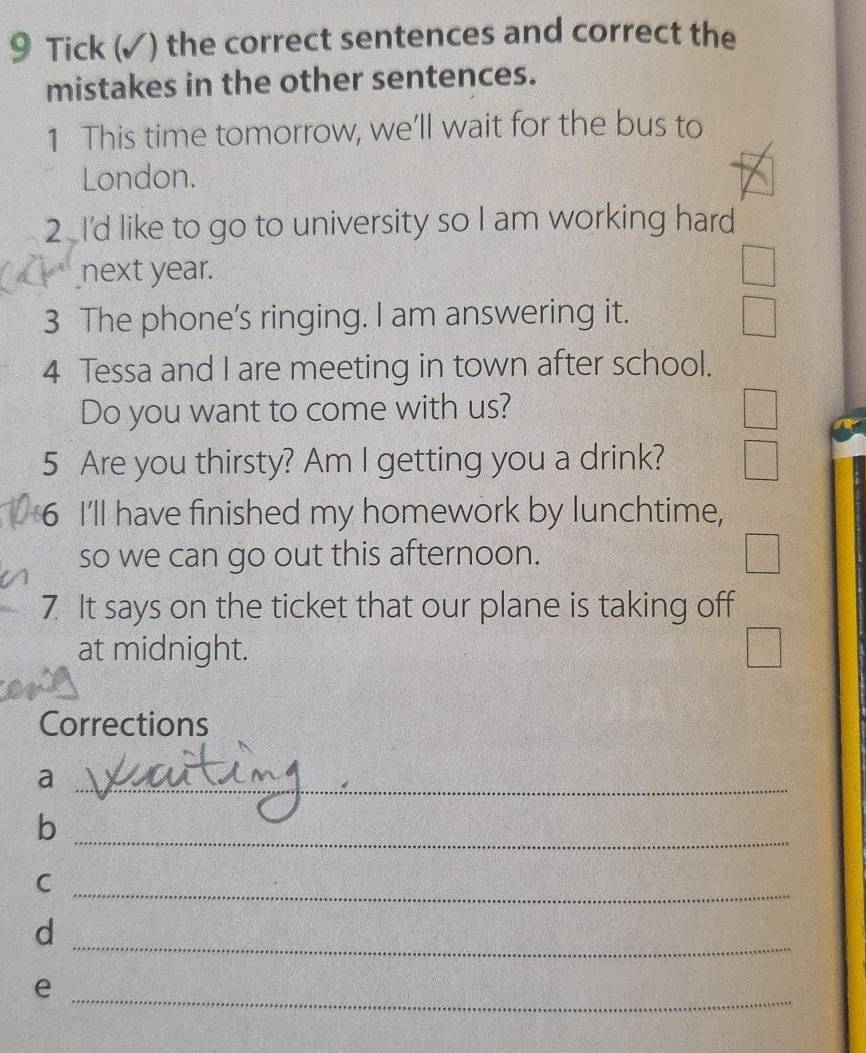 9 Tick (✓) the correct sentences and correct the
mistakes in the other sentences.
1 This time tomorrow, we'll wait for the bus to
London.
2 I'd like to go to university so I am working hard
next year.
3 The phone's ringing. I am answering it.
4 Tessa and I are meeting in town after school.
Do you want to come with us?
5 Are you thirsty? Am I getting you a drink?
6 I'll have finished my homework by lunchtime,
so we can go out this afternoon.
7 It says on the ticket that our plane is taking off
at midnight.
Corrections
a waiting
b
c
d
e